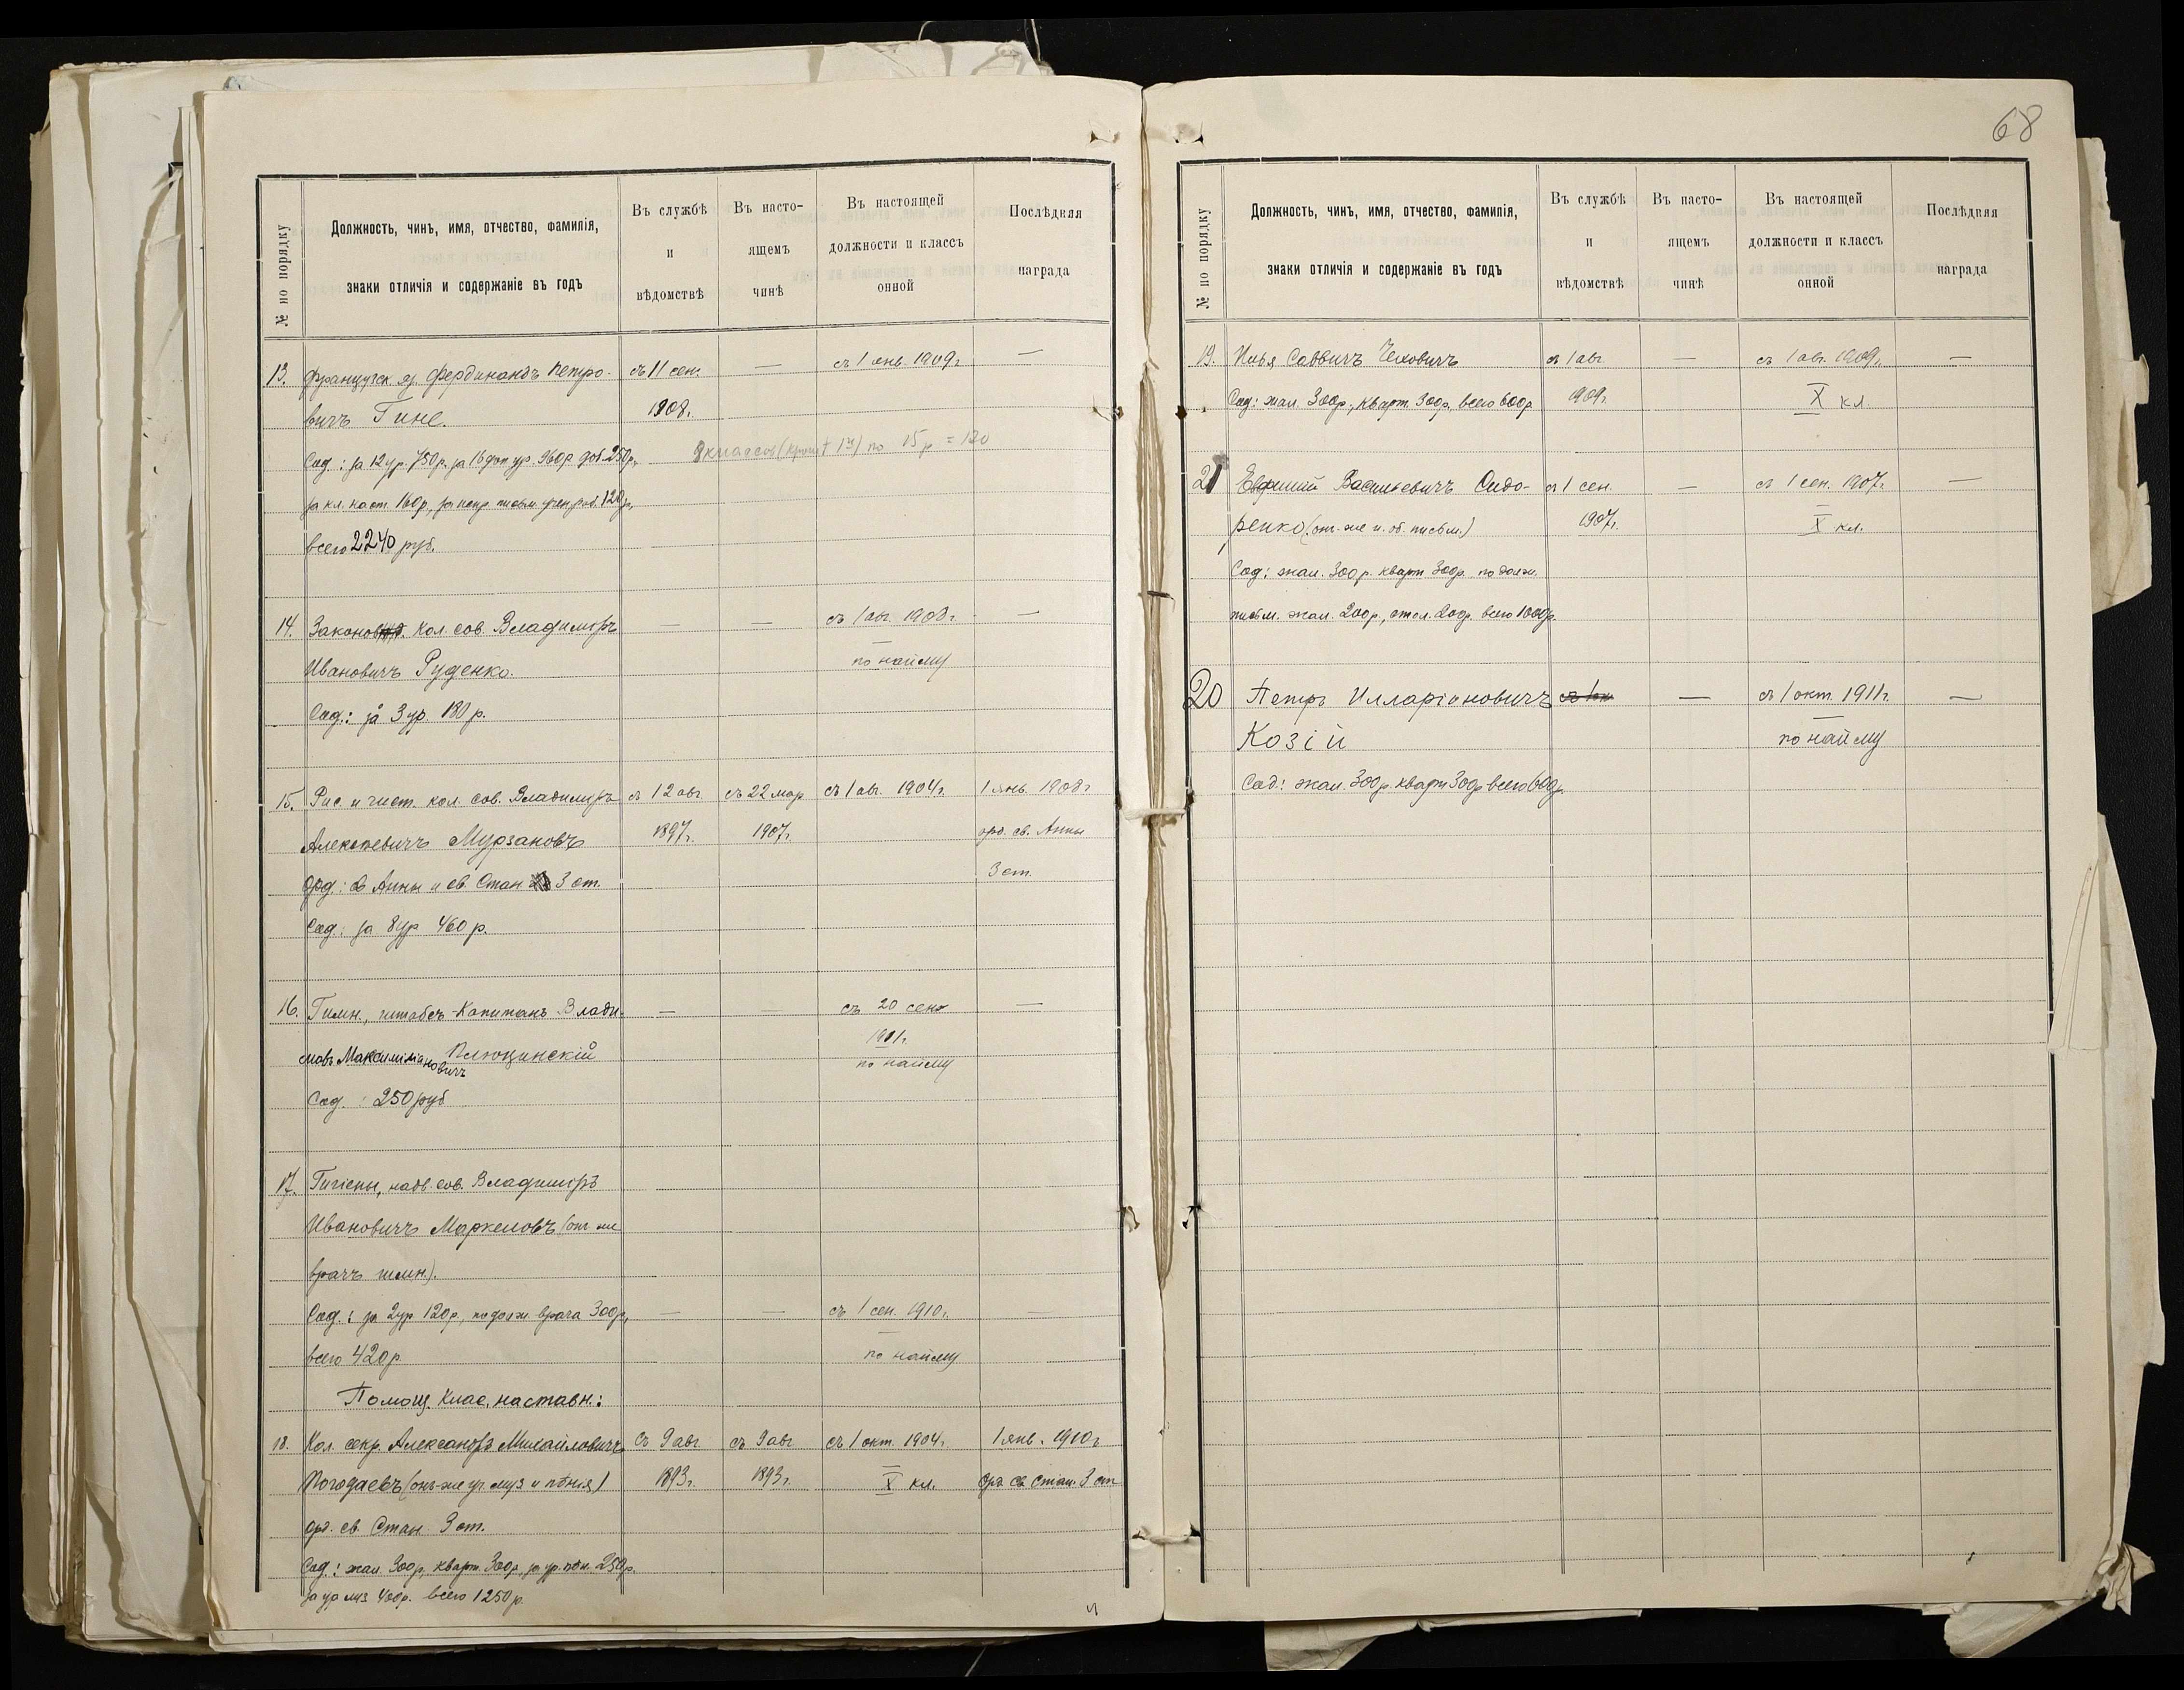 68
№ по порядку
Должность, чинъ, имя, отчество, фамилія,
знаки отличія и содержаніе въ годъ
Въ службѣ
и
вѣдомствѣ
Въ насто-
ящемъ
чинѣ
Въ настоящей
должности и классъ
онной
Послѣдняя
награда
13. Французск. яз. Фердинандъ Петро- съ 11 сен. — съ 1 янв. 1909 г. —
вичъ Гине. 1908 г.
Сод.: за 12 ур. 750 р. за 16 доп. ур. 960 р. доб. 250 р.,
за кл. наст. 160 р., за испр. письм. 120 р.,
8 классовъ (кромѣ 1го) по 15 р = 120
всего 2240 руб.
14. Законов. Кол. сов. Владиміръ — — съ 1 авг. 1908 г. —
Ивановичъ Руденко. по найму
Сод.: за 3 ур. 180 р.
15. Рис. и чист. кол. сов. Владиміръ съ 12 авг. съ 22 мар. съ 1 авг. 1904 г. 1 янв. 1908 г.
Алексѣевичъ Мурзановъ 1897 г. 1907 г. орд. св. Анны
Орд.: св Анны и св. Стан. 3 ст. 3 ст.
Сод.: за 8 ур 460 р.
16. Гимн., штабсъ-Капитанъ Влади- — — съ 20 сент —
славъ Максимиліановичъ Плюцинскій 1911 г.
по найму
Сод. : 250 руб
17. Гигіены, надв. сов. Владиміръ
Ивановичъ Маркеловъ (онъ же
врачъ гимн.).
Сод.: за 2 ур 120 р., по долж. врача 300 р., — — съ 1 сен. 1910 г. —
всего 420 р. по найму
Помощ. Клас. наставн.:
18. Кол. секр. Александръ Михайловичъ Съ 9 авг съ 9 авг съ 1 окт. 1904 г. 1 янв. 1910 г
Погодаевъ (онъ-же уч. муз и пѣнія) 1893 г. 1893 г. X кл. Орд. св Стан. 3 ст
Орд. св. Стан 3 ст.
Сод.: жал. 300 р., кварт. 300 р., за ур. пѣн. 250 р.
за ур муз 400 р. всего 1250 р.
№ по порядку
Должность, чинъ, имя, отчество, фамилія,
знаки отличія и содержаніе въ годъ
Въ службѣ
и
вѣдомствѣ
Въ насто-
ящемъ
чинѣ
Въ настоящей
должности и классъ
онной
Послѣдняя
награда
19. Илья Саввичъ Чеховичъ съ 1 авг. — съ 1 авг. 1909 г. —
Сод: жал. 300 р., кварт. 300 р., всего 600 р. 1909 г. X кл.
21 Евфимій Васильевичъ Сидо- съ 1 сен. — съ 1 сен. 1907 г. —
ренко (онъ-же и. об. письм.) 1907 г. X кл.
Сод: жал. 300 р. кварт 300 р. по долж.
письм. жал. 200 р., стол. 200 р. всего 1000 р.
20 Петръ Илларіоновичъ — съ 1 окт. 1911 г. —
Козій по найму
Сод: жал. 300 р. кварт 300 р всего 600 р.